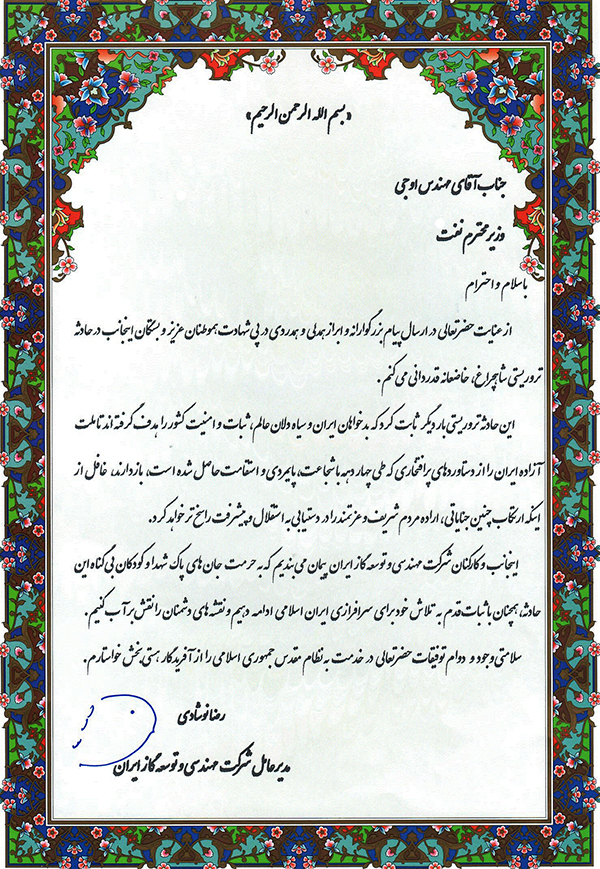 «بسم الله الرحمن الرحیم»
جناب آقای مهندس اوجی
وزیر محترم نفت
با سلام و احترام
از عنایت حضرتعالی در ارسال پیام بزرگوارانه و ابراز همدلی و همدردی در پی شهادت هموطنان عزیز و بستگان اینجانب در حادثه
تروریستی شاهچراغ، خاضعانه قدردانی می کنم.
این حادثه تروریستی بار دیگر ثابت کرد که بدخواهان ایران و سیاه دلان عالم، ثبات و امنیت کشور را هدف گرفته اند تا ملت
آزاده ایران را از دستاوردهای پرافتخاری که طی چهار دهه با شجاعت، پایمردی و استقامت حاصل شده است، بازدارند، غافل از
اینکه ارتکاب چنین جنایاتی، اراده مردم شریف و عزتمند را در دستیابی به استقلال و پیشرفت راسخ تر خواهد کرد.
اینجانب و کارکنان شرکت مهندسی و توسعه گاز ایران پیمان می بندیم که به حرمت جان های پاک شهدا و کودکان بی گناه این
حادثه، همچنان با ثبات قدم به تلاش خود برای سرافرازی ایران اسلامی ادامه دهیم و نقشه های دشمنان را نقش بر آب کنیم.
سلامتی وجود و دوام توفیقات حضرتعالی در خدمت به نظام مقدس جمهوری اسلامی را از آفریدگار هستی بخش خواستارم.
رضا نوشادی
مدیرعامل شرکت مهندسی و توسعه گاز ایران